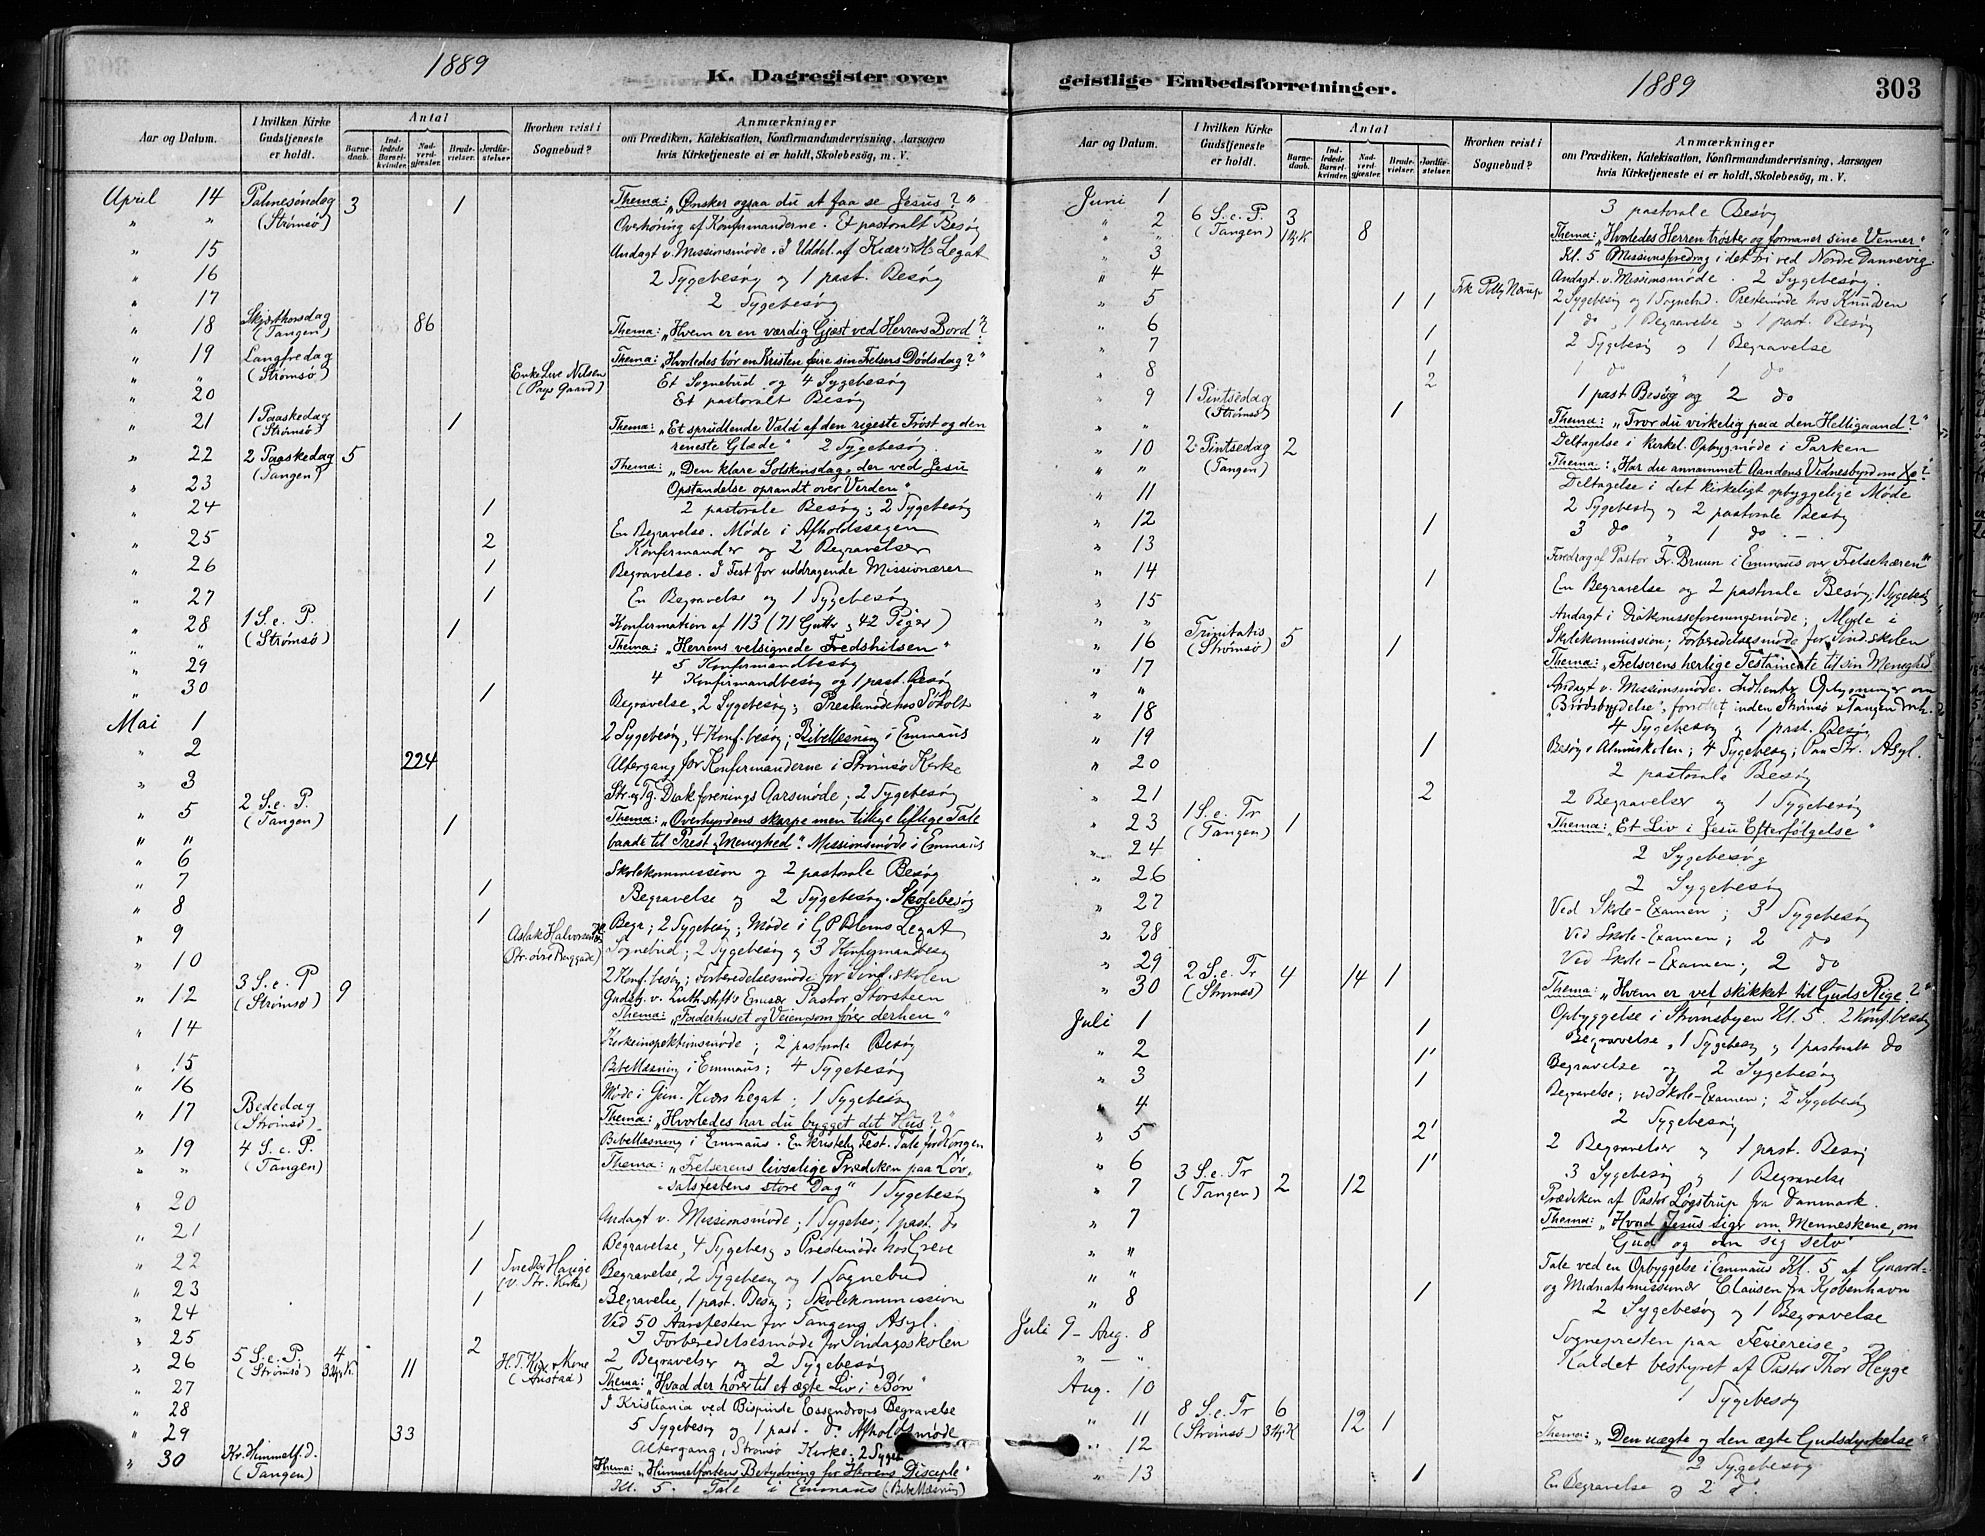 1889
K. Dagregister over
Aar og Datum.
I hvilken Kirke Gudstjeneste er holdt.
Antal
Barnedaab.
Indledede Barselkvinder.
Nadverdgjester.
Brudevielser.
Jordfæstelser
Hvorhen reist i Sognebud?
Anmærkninger
om Prædiken, Katekisation, Konfirmandundervisning, Aarsagen
hvis Kirketjeneste ei er holdt, Skolebesøg, m. V.
April 14 Palmesøndag 3 1 Thema: „Ønsker ogsaa du at faa se Jesus?"
" " (Strømsø) Overhøring af Konfirmanderne. Et pastoralt Besøg
" 15 Andagt v. Missionsmøde. I Uddel. af Kiærs Legat
" 16 2 Sygebesøg og 1 past. Besøg
" 17 2 Sygebesøg
" 18 Skjærthorsdag (Tangen) 86 Thema: „Hvem er en værdig Gjæst ved Herrens Bord?"
" 19 Langfredag Thema: „Hvorledes bør en Kristen feire sin Frelsers Dødsdag?"
" " (Strømsø) Enke Live Nilsen Et Sognebud og 4 Sygebesøg
" 20 Et pastoralt Besøg
" 21 1 Paaskedag (Strømsø) 1 Thema: „Et sprudlende Væld af den rigeste Trøst og den
reneste Glæde" 2 Sygebesøg.
" 22 2 Paaskedag (Tangen) 5 Thema: „Den klare Solskinsdag, der ved Jesu
" 23 Opstandelse oprandt over Verden"
" 24 1 2 pastorale Besøg; 2 Sygebesøg
" 25 2 En Begravelse. Møde i Afholdssagen
Konfirmander og 2 Begravelser
" 26 1 Begravelse. I Fest for uddragende Missionærer
" 27 1 En Begravelse og 1 Sygebesøg
" 28 1 S. e. P. 1 Konfirmation af 113 (71 Gutter, 42 Piger)
" " (Strømsø) Thema: „Herrens velsignede Fredshilsen"
" 29 5 Konfirmandbesøg
" 30 1 4 Konfirmandbesøg og 1 past. Besøg
Mai 1 Begravelse, 2 Sygebesøg; Prestemøde hos
2 Sygebesøg, 4 Konf. besøg; Bibellæsning i Emmaus
" 2 224 Altergang for Konfirmanderne i Strømsø Kirke
" 3 Str. og Tg. Diakforenings Aarsmøde; 2 Sygebesøg
" 5 2 S. e. P. (Tangen) 1 Thema: „Overhyrdens skarpe men tillige liflige Tale
" " baade til Prest og Menighed". Missionsmøde i Emmaus
" 6 Skolekommission og 2 pastorale Besøg
" 7 1 Begravelse og 2 Sygebesøg. Skolebesøg
" 8 1 Begr.; 2 Sygebesøg; Møde i G P Bloms Legat
" 9 Aslak Halvorsen Sognebud; 2 Sygebesøg og 3 Konfirmandbesøg
" 10 2 Konf. besøg; Forberedelsesmøde for Sønd. skolen
" 12 3 S. e. P (Strømsø) 9 Gudstj. v. Luth. stift's Emisær Pastor Storsteen
Thema: „Faderhuset og Veien, som fører derhen"
" 14 Kirkeinspektionsmøde; 2 pastorale Besøg
" 15 Bibellæsning i Emmaus; 4 Sygebesøg
" 16 Møde i Kiærs Legat; 1 Sygebesøg
" 17 Bededag (Strømsø) Thema: „Hvorledes har du bygget dit Hus?"
" 19 4 S. e. P. Bibellæsning i Emmaus.
" " (Tangen) Thema: „Frelserens livsalige Prædiken paa Løv-
salsfestens store Dag" 1 Sygebesøg
" 20 Andagt v. Missionsmøde; 1 Sygebes; 1 past. do
" 21 1 Begravelse, 4 Sygebesøg & Prestemøde hos Greve
" 22 1 (v. Str. Kirke) Begravelse, 2 Sygebesøg og 1 Sognebud
" 23 1 Begravelse, 1 past. Besøg; Skolekommission
" 24 Ved 50 Aarsfesten for Tangens Asyl.
" 25 2 I Forberedelsesmøde for Søndagsskolen
2 Begravelser og 2 Sygebesøg
" 26 5 S. e. P. (Strømsø) 4 11 Thema: „Hvad der hører til et ægte Liv i Bøn"
" 27 I Kristiania ved Bispinde Essendrops Begravelse
" 28 5 Sygebesøg og 1 past. do. Afholdsmøde
" 29 33 Altergang, Strømsø Kirke; 2 Sygeb
" 30 Kr. Himmelf. d. (Tangen) Thema: „Himmelfartens Betydning for Herrens Disciple"
Kl. 5. Tale i Emmaus (Bibellæsning)
geistlige Embedsforretninger.
1889
303
Aar og Datum.
I hvilken Kirke Gudstjeneste er holdt.
Antal
Barnedaab.
Indledede Barselkvinder.
Nadverdgjester.
Brudevielser.
Jordfæstelser
Hvorhen reist i Sognebud?
Anmærkninger
om Prædiken, Katekisation, Konfirmandundervisning, Aarsagen
hvis Kirketjeneste ei er holdt, Skolebesøg, m. V.
Juni 1 3 pastorale Besøg
" 2 6 S. e. P. (Tangen) 3 8 Thema: „Hvorledes Herren trøster og formaner sine Venner"
" " Kl. 5 Missionsforedrag i det fri ved Nordre Dannevig
" 3 Andagt v. Missionsmøde. 2 Sygebesøg.
" 4 2 Sygebesøg og 1 Sogneb. Prestemøde hos Knudsen
" 5 1 1 1 do, 1 Begravelse og 1 past. Besøg
" 6 1 2 Sygebesøg og 1 Begravelse
" 7 1 1 do " 1 do
" 8 2 1 past Besøg og 2 do
" 9 1 Pintsedag (Strømsø) 1 Thema: „Tror du virkelig paa den Helligaand?"
" " Deltagelse i kirkel. Opbyg. møde i Parken
" 10 2 Pintsedag (Tangen) 2 Thema: „Har du annammet Aandens Vidnesbyrd om
" " Deltagelse i det kirkeligt opbyggelige Møde
" 11 2 Sygebesøg og 2 pastorale Besøg
" 12 1 3 do " 1 do
" 13 Foredrag af Pastor Fr. Bruun i Emmaus over „Frelsehæren"
" 14 1 En Begravelse og 2 pastorale Besøg, 1 Sygebesøg
" 15 Andagt i Diakonisseforeningsmøde; Møde i
" " Skolekommission; Forberedelsesmøde for Sønd. skolen
" 16 Trinitatis (Strømsø) 5 1 Thema: „Frelserens herlige Testamente til sin Menighed
" 17 Andagt v. Missionsmøde.
" "
" 18 4 Sygebesøg og 1 past. Besøg
" 19 1 Besøg i Almuskolen; 4 Sygebesøg; Paa Str. Asyl.
" 20 2 pastorale Besøg
" 21 2 2 Begravelser og 1 Sygebesøg
" 23 1 S. e. Tr (Tangen) 1 Thema: „Et Liv i Jesu Efterfølgelse"
" 24 2 Sygebesøg
" 26 2 Sygebesøg
" 27 Ved Skole-Examen; 3 Sygebesøg
" 28 Ved Skole-Examen; 2 do
" 29 Ved Skole-Examen; 2 do
" 30 2 S. e. Tr (Strømsø) 4 14 1 Thema: „Hvem er vel skikket til Guds Rige?"
Opbyggelse i Strømsbyen Kl. 5. 2 Konf. besøg
Juli 1 1 Begravelse, 1 Sygebesøg og 1 pastoralt do
" 2 1 Begravelse og 2 Sygebesøg
" 3 1 Begravelse; ved Skole-Examen; 2 Sygebesøg
" 4 2 Sygebesøg
" 5 2 2 Begravelser og 1 past. Besøg
" 6 1 3 Sygebesøg og 1 Begravelse
" 7 3 S. e. Tr (Tangen) 2 12 Prædiken af Pastor Løgstrup fra Danmark.
" 7 Thema: „Hvad Jesus siger om Menneskene, om
Gud og om sig selv"
" " Tale ved en Opbyggelse i Emmaus Kl. 5 af Gaard-
" " og Midnatsmissionær Clausen fra Kjøbenhavn
" 8 1 2 Sygebesøg og 1 Begravelse
Juli 9 – Aug. 8 Sognepresten paa Feriereise.
" – " Kaldet bestyret af Pastor Thor Hegge
Aug. 10 1 Sygebesøg
" 11 8 S. e. Tr (Strømsø) 6 12 1 Thema: „Den uægte og den ægte Gudsdyrkelse"
" 12 2 Sygebesøg
" 13 1 En Begravelse og 2 do.